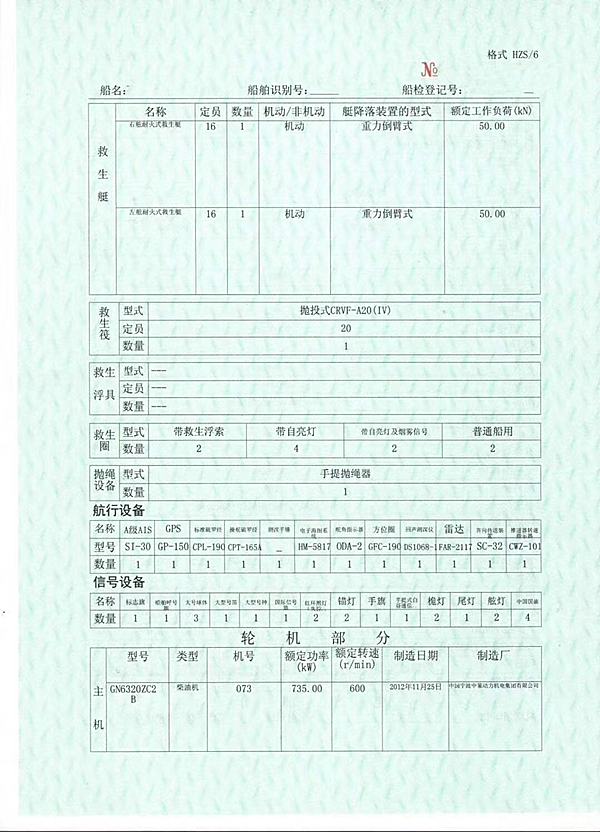 格式 HZS/6
№
船名: 船舶识别号: 船检登记号:
名称 定员 数量 机动/非机动 艇降落装置的型式 额定工作负荷(kN)
救生艇
右舷耐火式救生艇 16 1 机动 重力倒臂式 50.00
左舷耐火式救生艇 16 1 机动 重力倒臂式 50.00
救生筏 型式 抛投式CRVF-A20(IV)
定员 20
数量 1
救生浮具 型式 ---
定员 ---
数量 ---
救生圈 型式 带救生浮索 带自亮灯 带自亮灯及烟雾信号 普通船用
数量 2 4 2 2
抛绳设备 型式 手提抛绳器
数量 1
航行设备
名称 A级AIS GPS 标准磁罗经 操舵磁罗经 测深手锤 电子海图系统 舵角指示器 方位圈 回声测深仪 雷达
型号 SI-30 GP-150 CPL-190 CPT-165A _ HM-5817 ODA-2 GFC-190 DS1068-1 FAR-2117 SC-32 CWZ-101
数量 1 1 1 1 1 1 1 1 1 1 1 1
信号设备
名称 标志旗 船舶呼号旗 大号球体 大型号笛 大型号钟 国际信号旗 锚灯 手旗 桅灯 尾灯 舷灯 中国国旗
数量 1 1 3 1 1 1 2 2 1 1 2 1 2 4
轮机部分
型号 类型 机号 额定功率(kW) 额定转速(r/min) 制造日期 制造厂
主机 GN6320ZC2B 柴油机 073 735.00 600 2012年11月25日 中国宁波中策动力机电集团有限公司